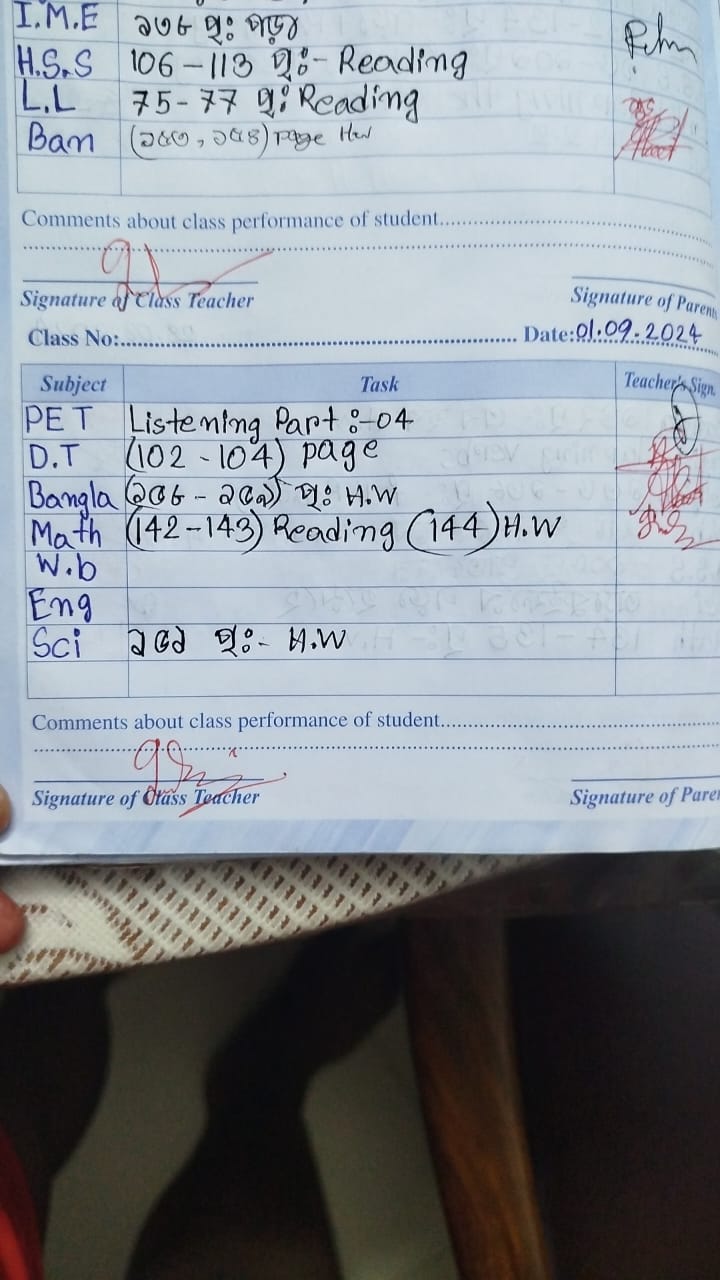 I.M.E ১৩৮ পৃঃ পড়া
H.S.S 106-113 পৃঃ- Reading
L.L 75-77 পৃঃ Reading
Ban (১৫৩, ১৫৪) page Hw
Comments about class performance of student
Signature of Class Teacher Signature of Parent
Class No: Date: 01.09.2024
Subject Task Teacher's Sign.
PET Listening Part :-04
D.T (102 - 104) page
Bangla পৃঃ H.W
Math (142-143) Reading (144) H.W
W.b
Eng
Sci পৃঃ- H.W
Comments about class performance of student
Signature of Class Teacher Signature of Paren